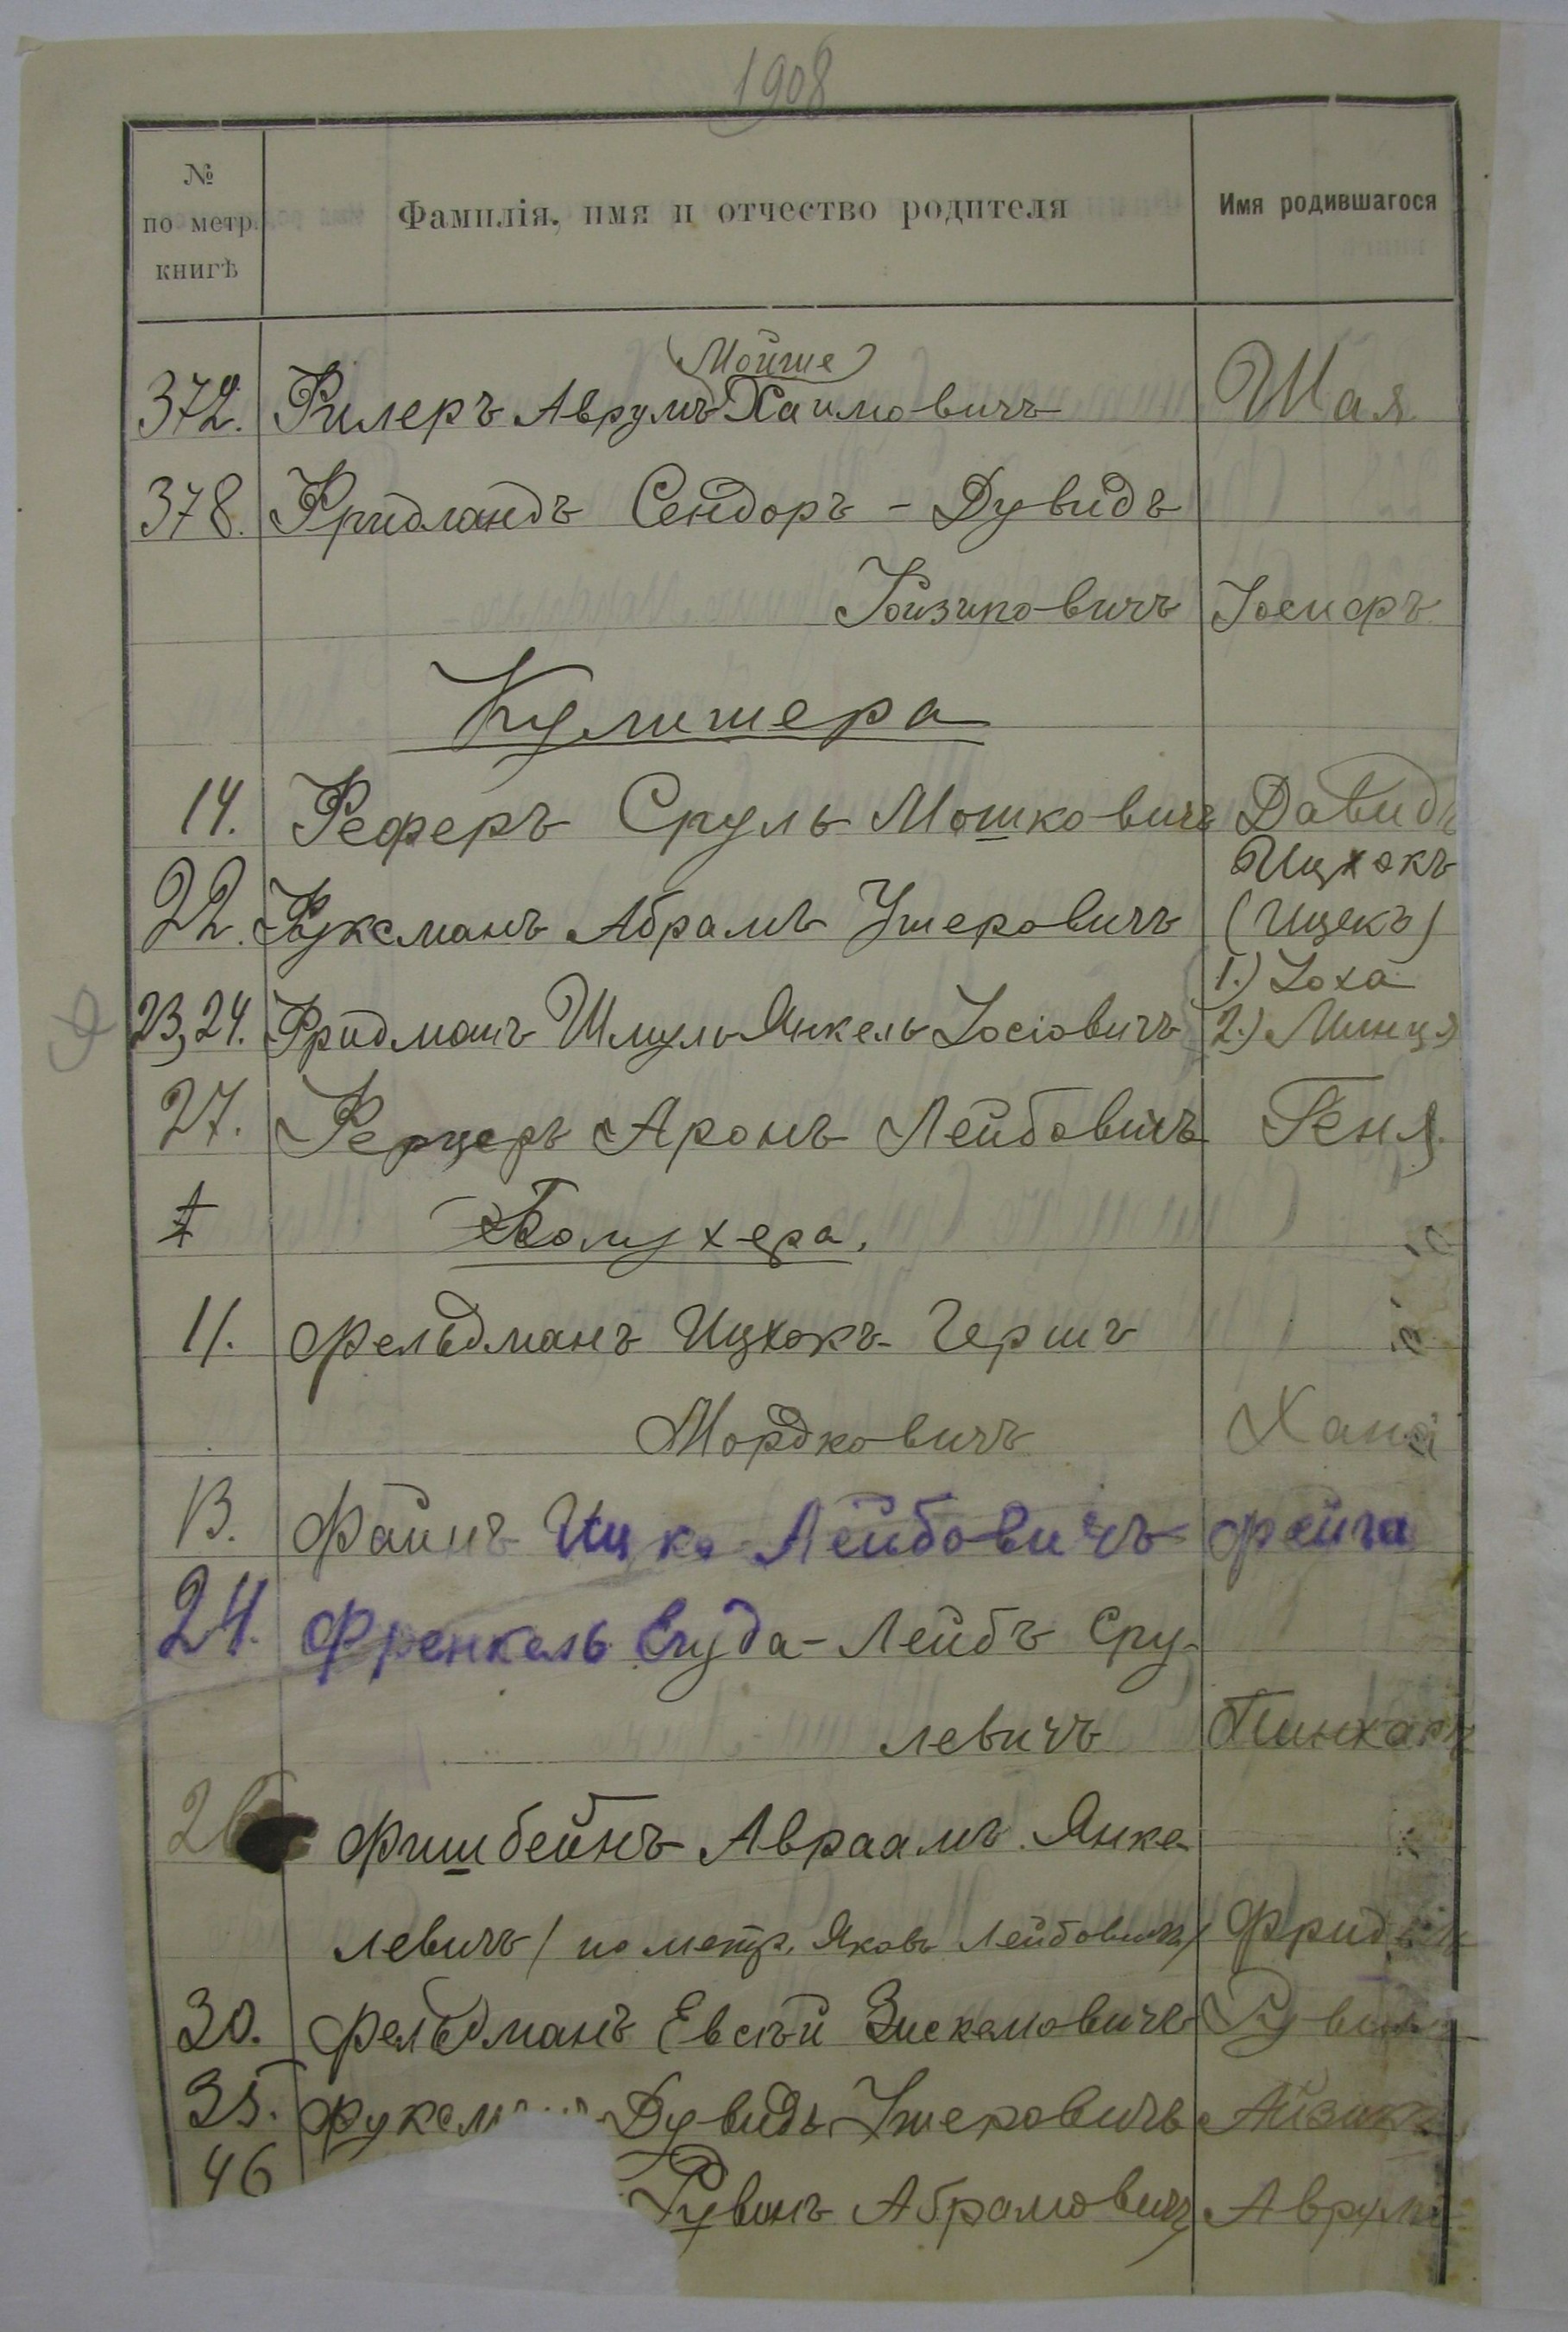 1908
№ по метр. книгѣ
Фамилія, имя и отчество родителя
Имя родившагося
(Мойше)
372. Филеръ Аврумъ Хаимовичъ Шая
378. Фридландъ Сендоръ - Дувидъ
Іойзиповичъ Іосифъ
Кулишера
14. Феферъ Сруль Мошковичъ Давидъ
Ицхокъ
22. Фуксманъ Абрамъ Ушеровичъ (Ицекъ)
1.) Zоха
23, 24. Фридманъ Шмуль Янкель Іосіовичъ 2.) Минця
27. Ферцеръ Аронъ Лейбовичъ Геня
Полухера.
11. Фельдманъ Ицхокъ-Гершъ
Мордковичъ Хана
13. Файнъ Ицко Лейбовичъ Фейга
24. Френкель Егуда-Лейбъ Сру-
левичъ Пинхасъ
26 Фишбейнъ Авраамъ Янке
левичъ (по метр. Яковъ Лейбовичъ)
30. Фельдманъ Евсѣй Зискемовичъ
35. Дувидъ Ушеровичъ Айзикъ
46 Рувинъ Абрамовичъ Аврумъ